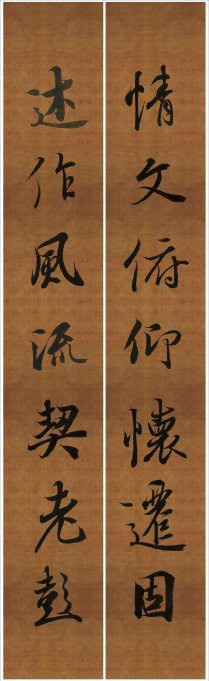 情文俯仰懷遷固
述作風流契老彭